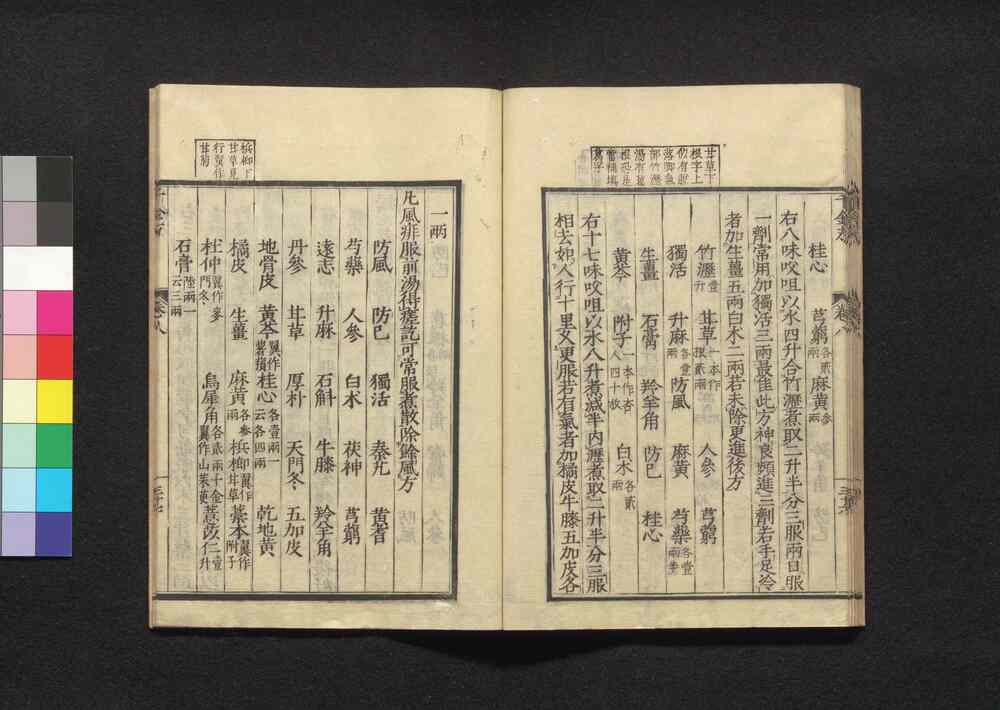 甘草下
根字上
桂心　芎藭各貳兩　麻黃參兩
右八味㕮咀以水四升合竹瀝煮取二升半分三服兩日服
一劑常用加獨活三兩最佳此方神良頻進三劑若手足冷
者加生薑五兩白朮二兩若未除更進後方
竹瀝壹升　甘草一本作根貳兩　人參　芎藭
獨活　升麻各壹兩　防風　麻黃　芍藥各壹兩半
生薑　石膏　羚羊角　防已　桂心
黃芩　附子一本作杏人四十枚　白朮各貳兩
右十七味㕮咀以水八升煮減半內瀝煮取二升半分三服
相去如人行十里久更服若有氣者加橘皮牛膝五加皮各
千金方　卷八
檳榔下
甘草見
行翼作
一兩
凡風痱服前湯得瘥訖可常服煮散除餘風方
防風　防已　獨活　秦艽　黃耆
芍藥　人參　白朮　茯神　芎藭
遠志　升麻　石斛　牛膝　羚羊角
丹參　甘草　厚朴　天門冬　五加皮
地骨皮　黃芩翼作署預　桂心各壹兩一云各四兩　乾地黃
橘皮　生薑　麻黃各參兩　檳榔翼作甘草　藁本翼作附子
杜仲翼作麥門冬　烏犀角各貳兩十金翼作山茱萸　薏苡仁壹升
石膏陸兩一云三兩